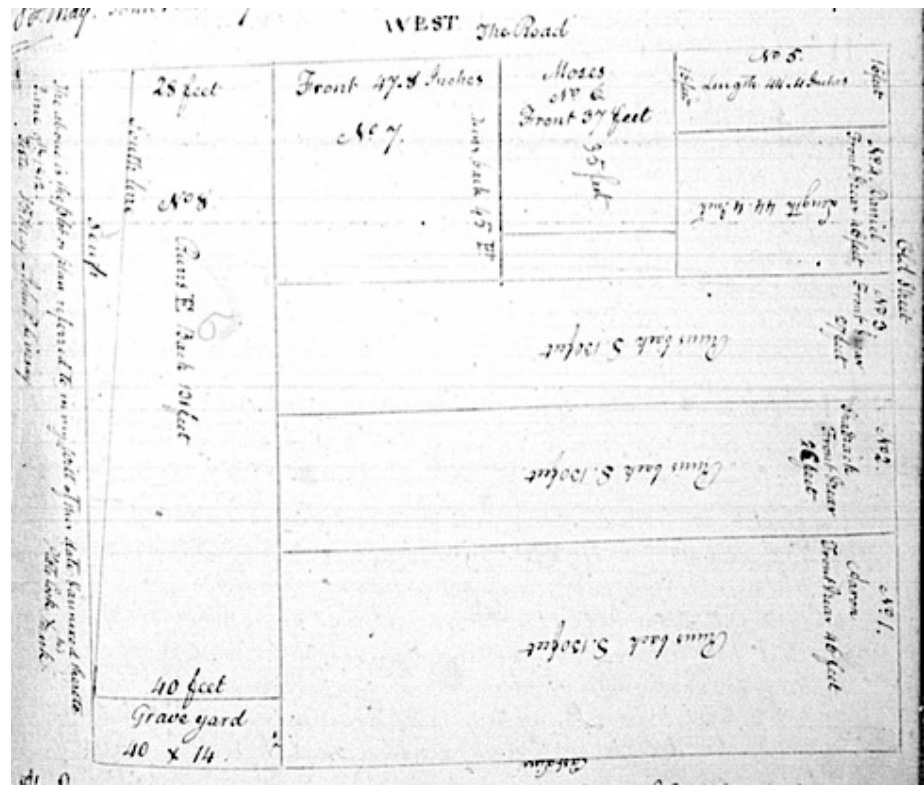 WEST The Road
28 feet
South line
No 8.
Runs E Back 131 feet
40 feet
Grave yard
40 x 14.
Front 47.8 Inches
No 7.
runs back 45 Ft
Moses
No 6
Front 37 feet
35 feet
No 5.
Length 44.4 Inches
16 feet
16 feet
No 4. Daniel
Front & rear 40 feet
Length 44.4 Inch
Old Street
No 3.
Front & rear
37 feet
Runs back S. 130 feet
No 2.
Shadrach
Front & rear
38 feet
Runs back S. 130 feet
No 1.
Aaron
Front & rear 46 feet
Runs back S. 130 feet
The above is the plot or plan referred to in my will of this date & annexed thereto
his
mark